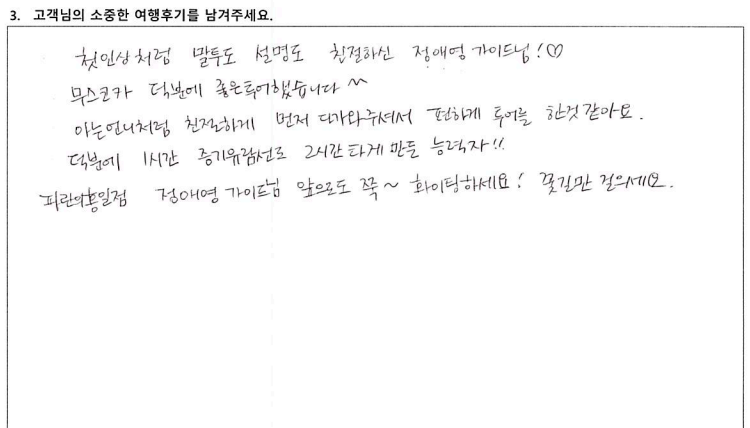 3. 고객님의 소중한 여행후기를 남겨주세요.
첫인상처럼 말투도 설명도 친절하신 정애영 가이드님!♡
무스코카 덕분에 좋은투어했습니다^^
아는언니처럼 친절하게 먼저 다가와주셔서 편하게 투어를 한것같아요.
덕분에 1시간 증기유람선도 2시간타게 만든 능력자!!
홍일점 정애영 가이드님 앞으로도 쭉~ 화이팅하세요! 꽃길만 걸으세요.